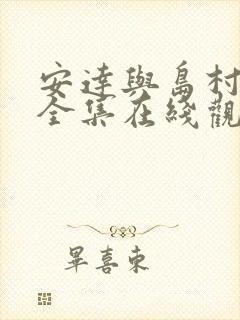 安達與島村
全集在綫觀
畢喜東